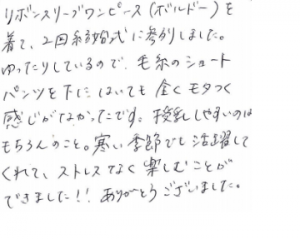 リボンスリーブワンピース(ボルドー)を
着て、2回結婚式に参列しました。
ゆったりしているので、毛糸のショート
パンツを下にはいても全くモタつく
感じがなかったです。授乳しやすいのは
もちろんのこと。寒い季節でも活躍して
くれて、ストレスなく楽しむことが
できました!! ありがとうございました。